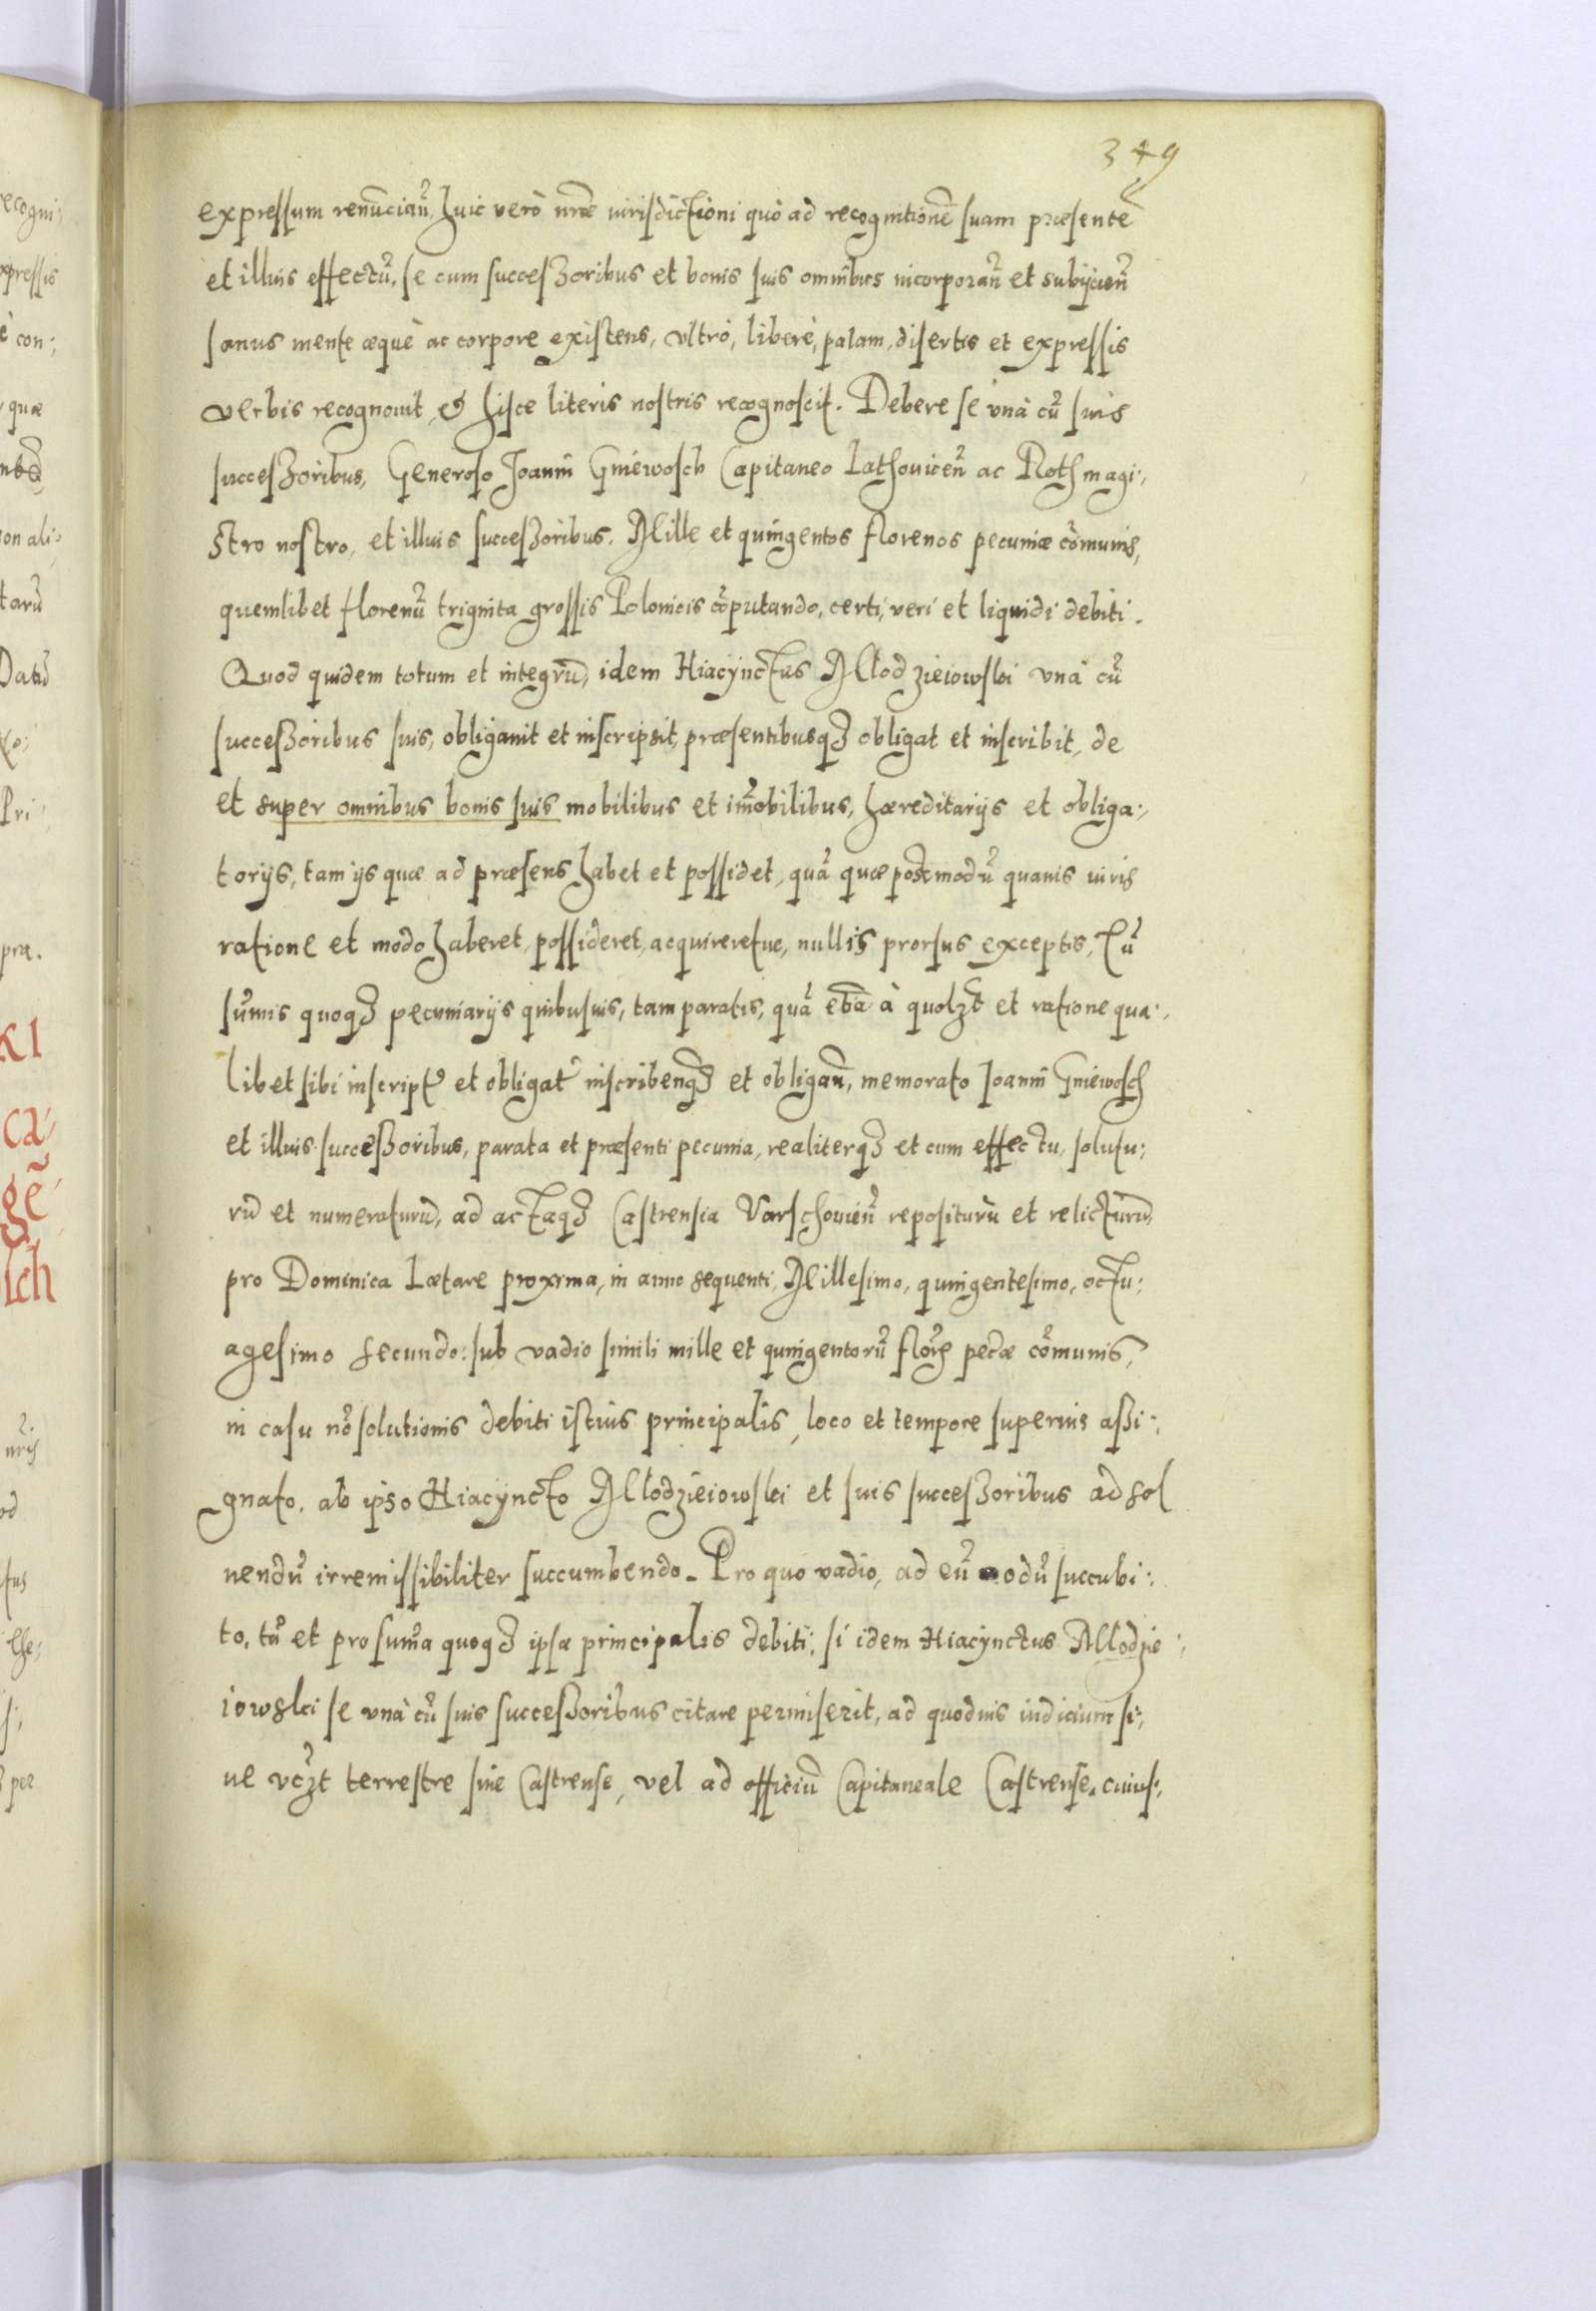 349
expressum renũciañ, huic verò nr̃ae iurisdictioni quò ad recognitionẽ suam præsentẽ
et illius effectũ, se cum successoribus et bonis suis omnibus incorporañ et subijcieñ
sanus mente æquè ac corpore existens, vltrò, liberè, palam, disertis et expressis
verbis recognouit, & hisce literis nostris recognoscit. Debere se vnà cũ suis
successoribus, Generoso Joanni Gniewosch Capitaneo Lathouiceñ ac Rothmagi:,
stro nostro, et illius successoribus, Mille et quingentos florenos pecuniæ cõmunis,
quemlibet florenũ triginta grossis Polonicis cõputando, certi, veri et liquidi debiti.
Quod quidem totum et integrũ, idem Hiacynctus Mlodzieiowski vnà cũ
successoribus suis, obligauit et inscripsit, præsentibusq3 obligat et inscribit, de
et super omnibus bonis suis mobilibus et im̃obilibus, hæreditarijs et obliga:,
torijs, tam ijs quæ ad præsens habet et possidet, quã quæ postmodũ quauis iuris
ratione et modo haberet, possideret, acquireretue, nullis prorsus exceptis, Tũ
sum̃is quoq3 pecuniarijs quibusuis, tam paratis, quã etiã à quolzt et ratione qua:,
libet sibi inscript̃ et obligat̃ inscribenq3 et obligañ, memorato Joanni Gniewosch
et illius successoribus, parata et præsenti pecunia, realiterq3 et cum effectu, solutu:,
rũ et numeraturũ, ad actaq3 Castrensia Varschouieñ repositurũ et relicturũ
pro Dominica Lætare proxima, in anno sequenti, Millesimo, quingentesimo, octu:,
agesimo secundo: sub vadio simili mille et quingentorũ florẽ pecũæ cõmunis,
in casu nõ solutionis debiti istius principalis, loco et tempore superius assi:,
gnato, ab ipso Hiacyncto Mlodzieiowski et suis successoribus ad sol
uendũ irremissibiliter succumbendo. Pro quo vadio, ad eũ modũ succubi:,
to, tũ et pro sum̃a quoq3 ipsa principalis debiti, si idem Hiacynctus Mlodzie:,
iowski se vnà cũ suis successoribus citare permiserit, ad quoduis iudicium si:,
ue vczt terrestre siue Castrense, vel ad officiũ Capitaneale Castrense, cuius:,